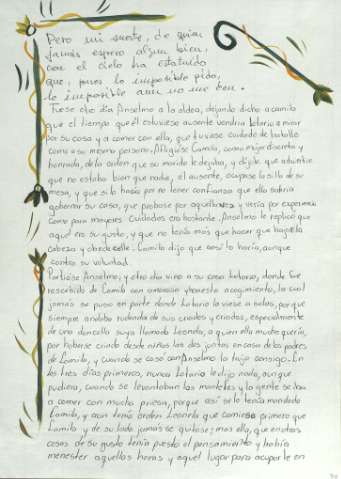 Pero mi suerte, de quien
jamás espero algún bien,
con el cielo ha estatuido
que, pues lo imposible pido,
lo imposible aun no me den.
Fuese otro día Anselmo a la aldea, dejando dicho a Camila
que el tiempo que él estuviese ausente vendría Lotario a mirar
por su casa y a comer con ella; que tuviese cuidado de tratallo
como a su mesma persona. Afligióse Camila, como mujer discreta y
honrada, de la orden que su marido le dejaba, y díjole que advirtiese
que no estaba bien que nadie, él ausente, ocupase la silla de su
mesa, y que si lo hacía por no tener confianza que ella sabría
gobernar su casa, que probase por aquella vez y vería por experiencia
como para mayores cuidados era bastante. Anselmo le replicó que
aquel era su gusto, y que no tenía más que hacer que bajar la
cabeza y obedecelle. Camila dijo que así lo haría, aunque
contra su voluntad.
Partióse Anselmo, y otro día vino a su casa Lotario, donde fue
rescebido de Camila con amoroso y honesto acogimiento, la cual
jamás se puso en parte donde Lotario la viese a solas, porque
siempre andaba rodeada de sus criados y criadas, especialmente
de una doncella suya llamada Leonela, a quien ella mucho quería,
por haberse criado desde niñas las dos juntas en casa de los padres
de Camila, y cuando se casó con Anselmo la trujo consigo. En
los tres días primeros, nunca Lotario le dijo nada, aunque
pudiera, cuando se levantaban los manteles y la gente se iba
a comer con mucha priesa, porque así se lo tenía mandado
Camila, y aun tenía orden Leonela que comiese primero que
Camila, y de su lado jamás se quitase; mas ella, que en otras
cosas de su gusto tenía puesto el pensamiento y había
menester aquellas horas y aquel lugar para ocuparle en